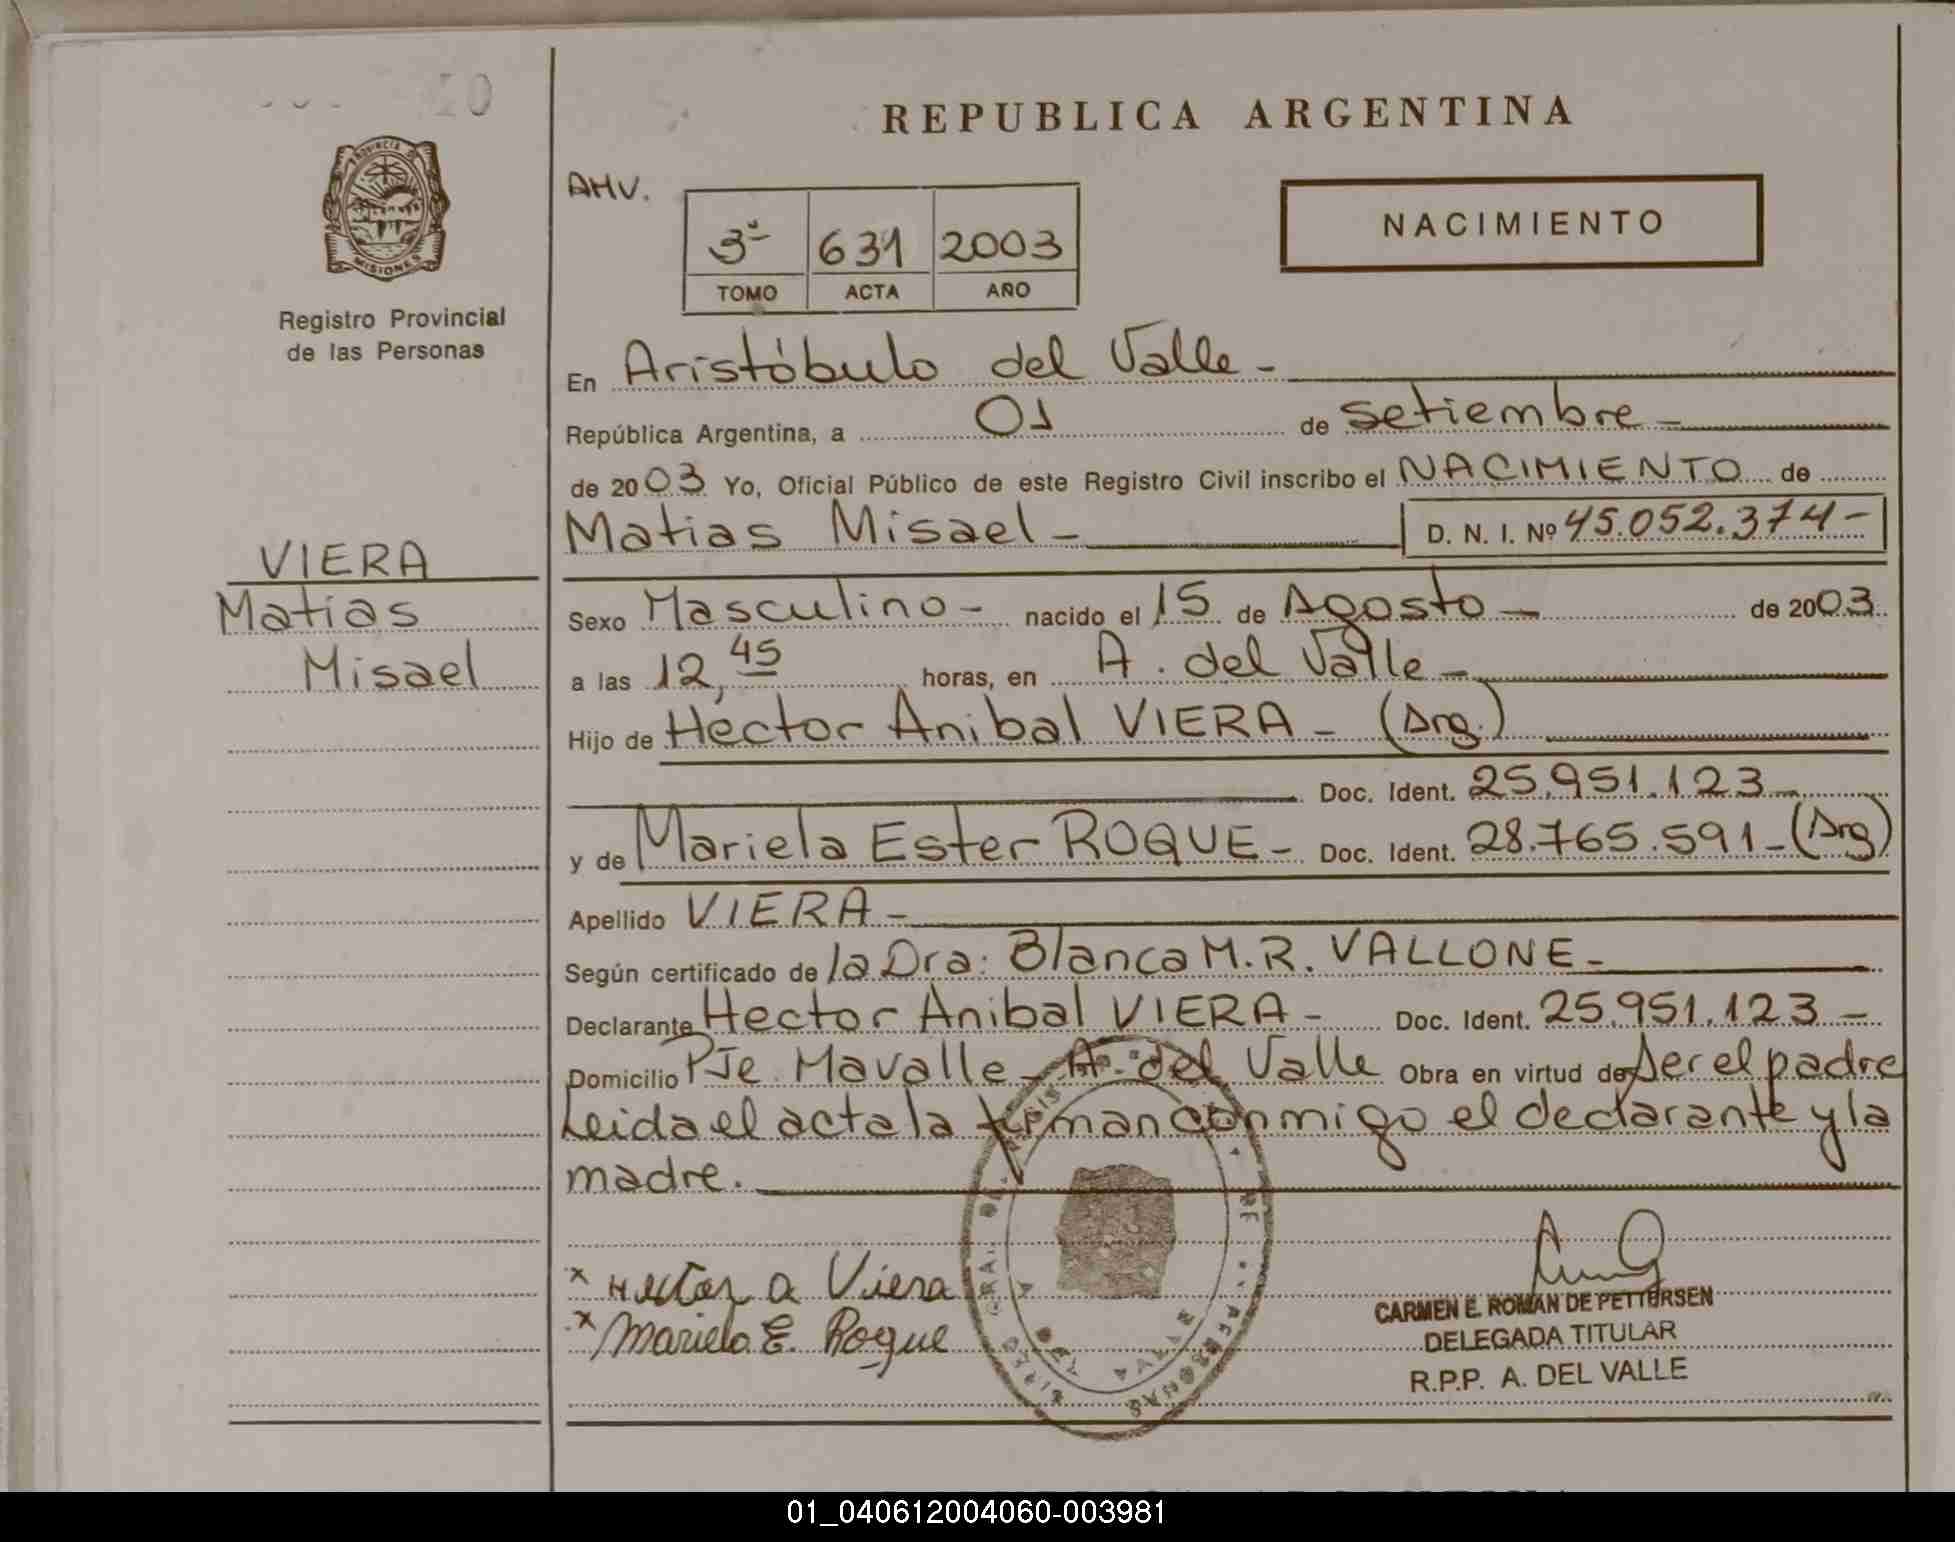 REPUBLICA ARGENTINA
PROVINCIA DE
MISIONES
Registro Provincial
de las Personas
AHV.
3º 631 2003
TOMO ACTA AÑO
NACIMIENTO
En Aristóbulo del Valle -
República Argentina, a 01 de Setiembre -
de 2003 Yo, Oficial Público de este Registro Civil inscribo el NACIMIENTO de
Matias Misael - D. N. I. Nº 45.052.374 -
VIERA
Matias
Misael
Sexo Masculino - nacido el 15 de Agosto - de 2003
a las 12,45 horas, en A. del Valle -
Hijo de Hector Anibal VIERA - (Arg.)
Doc. Ident. 25.951.123 -
y de Mariela Ester ROQUE - Doc. Ident. 28.765.591 - (Arg)
Apellido VIERA -
Según certificado de la Dra: Blanca M. R. VALLONE -
Declarante Hector Anibal VIERA - Doc. Ident. 25.951.123 -
Domicilio Pje. Mavalle - A. del Valle Obra en virtud de Ser el padre
Leida el acta la firman conmigo el declarante y la
madre.
x Hector a Viera
x Mariela E. Roque
CARMEN E. ROMAN DE PETTERSEN
DELEGADA TITULAR
R.P.P. A. DEL VALLE
01_040612004060-003981